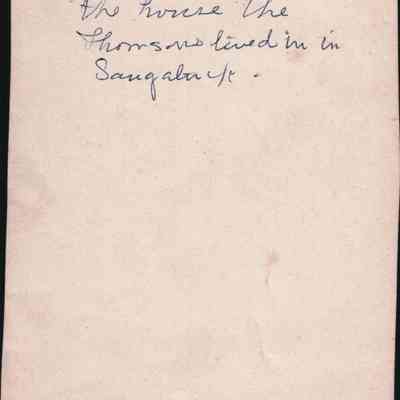 the house the
Thomsons lived in in
Saugatuck.